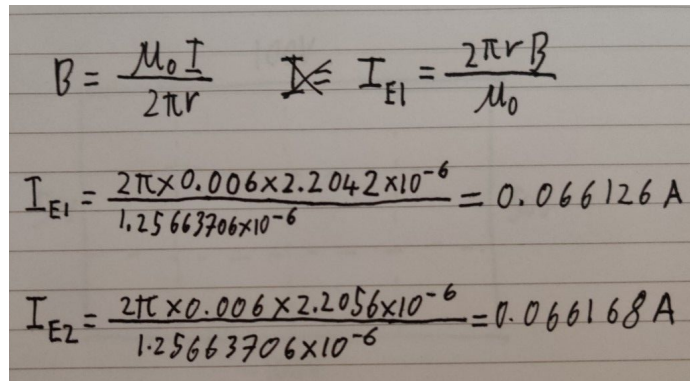 B = μ₀I / 2πr I = I_E1 = 2πrB / μ₀
I_E1 = 2π×0.006×2.2042×10⁻⁶ / 1.25663706×10⁻⁶ = 0.066126 A
I_E2 = 2π×0.006×2.2056×10⁻⁶ / 1.25663706×10⁻⁶ = 0.066168 A